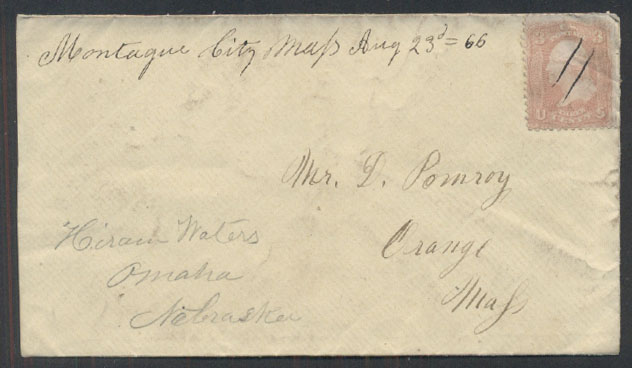 Montague City Mass Aug 23d = 66
Mr. D. Pomroy
Orange
Mass
Hiram Waters
Omaha
Nebraska
3 3
U S